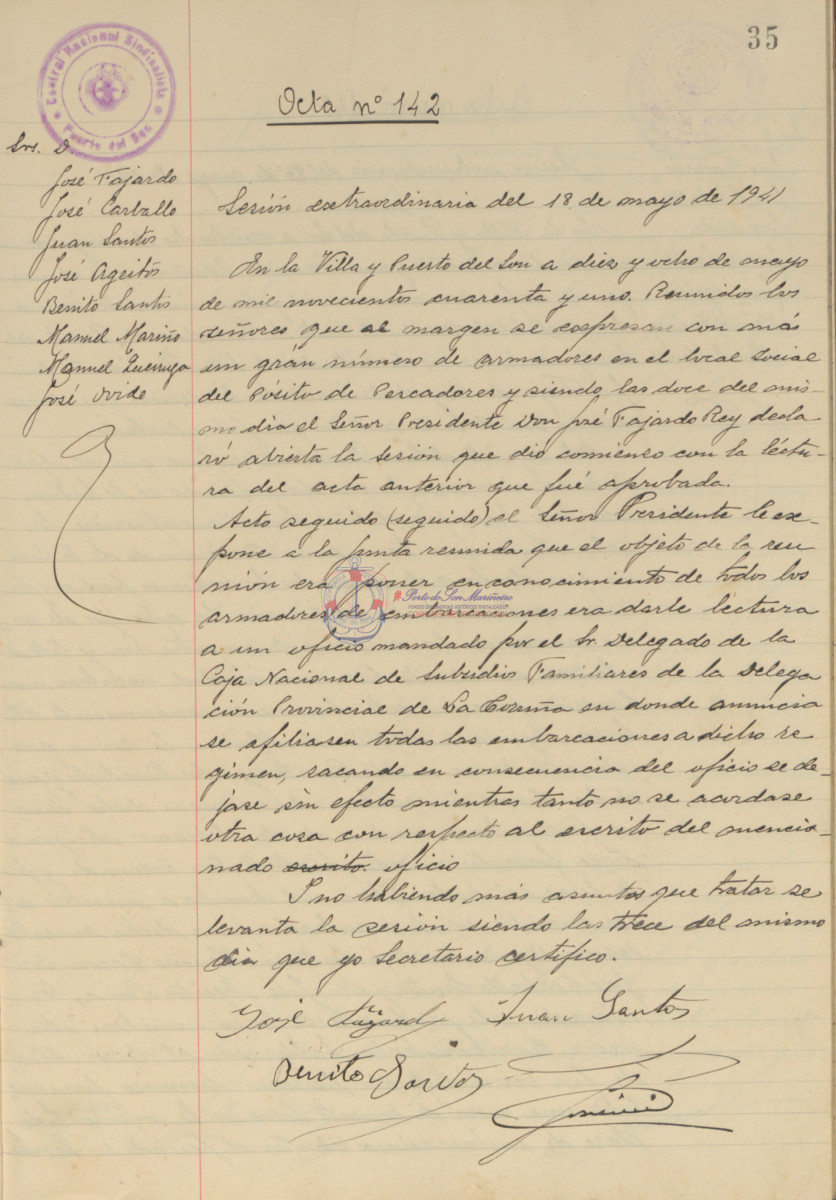 35
Central Nacional Sindicalista
Puerto del Son
Acta nº 142
Srs. D.
José Fajardo
José Carballo
Juan Santos
José Ageitos
Benito Santos
Manuel Mariño
Manuel Queiruga
José Ovide
Sesión extraordinaria del 18 de mayo de 1941
En la Villa y Puerto del Son a diez y ocho de mayo
de mil novecientos cuarenta y uno. Reunidos los
señores que al margen se expresan con más
un grán número de armadores en el local Social
del Pósito de Pescadores y siendo las doce del mis-
mo dia el Señor Presidente Don José Fajardo Rey decla
ró abierta la sesión que dio comienso con la léctu-
ra del acta anterior que fué aprobada.
Acto seguido (seguido) el Señor Presidente le ex-
pone a la junta reunida que el objeto de la reu-
nión era poner en conocimiento de todos los
armadores de embarcaciones era darle lectura
a un oficio mandado por el Sr. Delegado de la
Caja Nacional de Subsidios Familiares de la Delega
ción Provincial de La Coruña en donde anuncia
se afiliasen todas las embarcaciones a dicho re
gimen, sacando en consecuencia del oficio se de-
jase sin efecto mientras tanto no se acordase
otra cosa con respecto al escrito del mencio-
nado escrito oficio
Y no habiendo más asuntos que tratar se
levanta la sesión siendo las trece del mismo
dia que yo Secretario certifico.
José Fajardo Juan Santos
Benito Santos
Porto do Son Mariñeiro